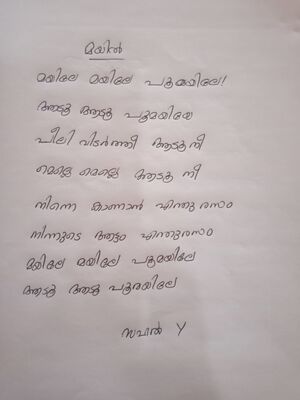 മയിൽ
മയിലേ മയിലേ പൂമയിലേ!
ആടൂ ആടൂ പൂമയിയേ
പീലി വിടർത്തീ ആടു നീ
മെല്ലെ മെല്ലെ ആടൂ നീ
നിന്നെ കാണാൻ എന്തു രസം
നിന്നുടെ ആട്ടം എന്തുരസം
മയിലേ മയിലേ പൂമയിലേ
ആടൂ ആടൂ പൂമയിലേ
Y